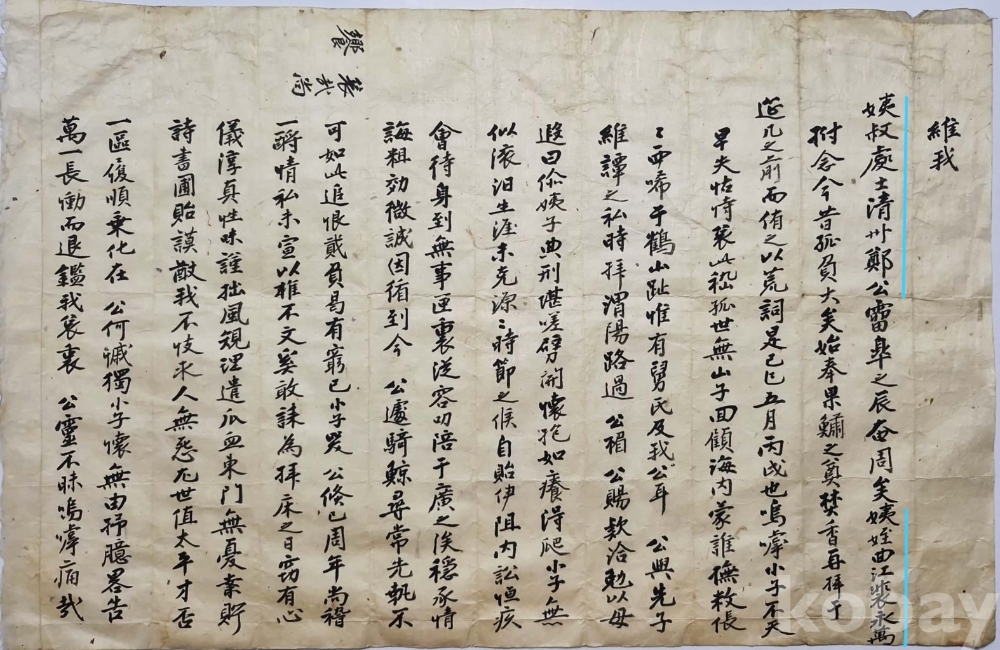 維我
姨叔處士清州鄭公雷皐之辰奄周矣姨姪曲江裴永萬
拊念今昔孤負大矣始奉果鱐之奠焚香再拜于
筵几之前而侑之以荒詞是己巳五月丙戌也嗚嘑小子不天
早失怙恃裴此嵇孤世無山子回顧海內蒙誰撫教倀
〻而啼于鶴山趾惟有舅氏及我公耳 公與先子
維譚之私時拜渭陽路過 公楣 公賜欵洽勉以母
遐曰你姨子典刑堪嗟劈開懷抱如癢淂爬小子無
似滚汨生涯未克源〻時節之候自貽伊阻內訟恒疚
會待身到無事匣裏從容叨陪于廣之涘穩承情
誨粗効微誠因循到今 公遽騎鯨尋常先執不
可如此追恨貳負曷有窮已小子哭 公倏已周年尚稽
一酹情私未宣以椎不文奚敢誄為拜床之日窃有心
儀淳真性味謹拙風䂓理遣瓜血東門無憂業貯
詩書圃貽謨猷我不忮求人無惡尤世值太平才否
一區履順乗化在 公何慽獨小子懷無由抒臆畧告
萬一長慟而退鑑我衷裏 公靈不昧嗚嘑痛哉
尚
我
饗
kobay